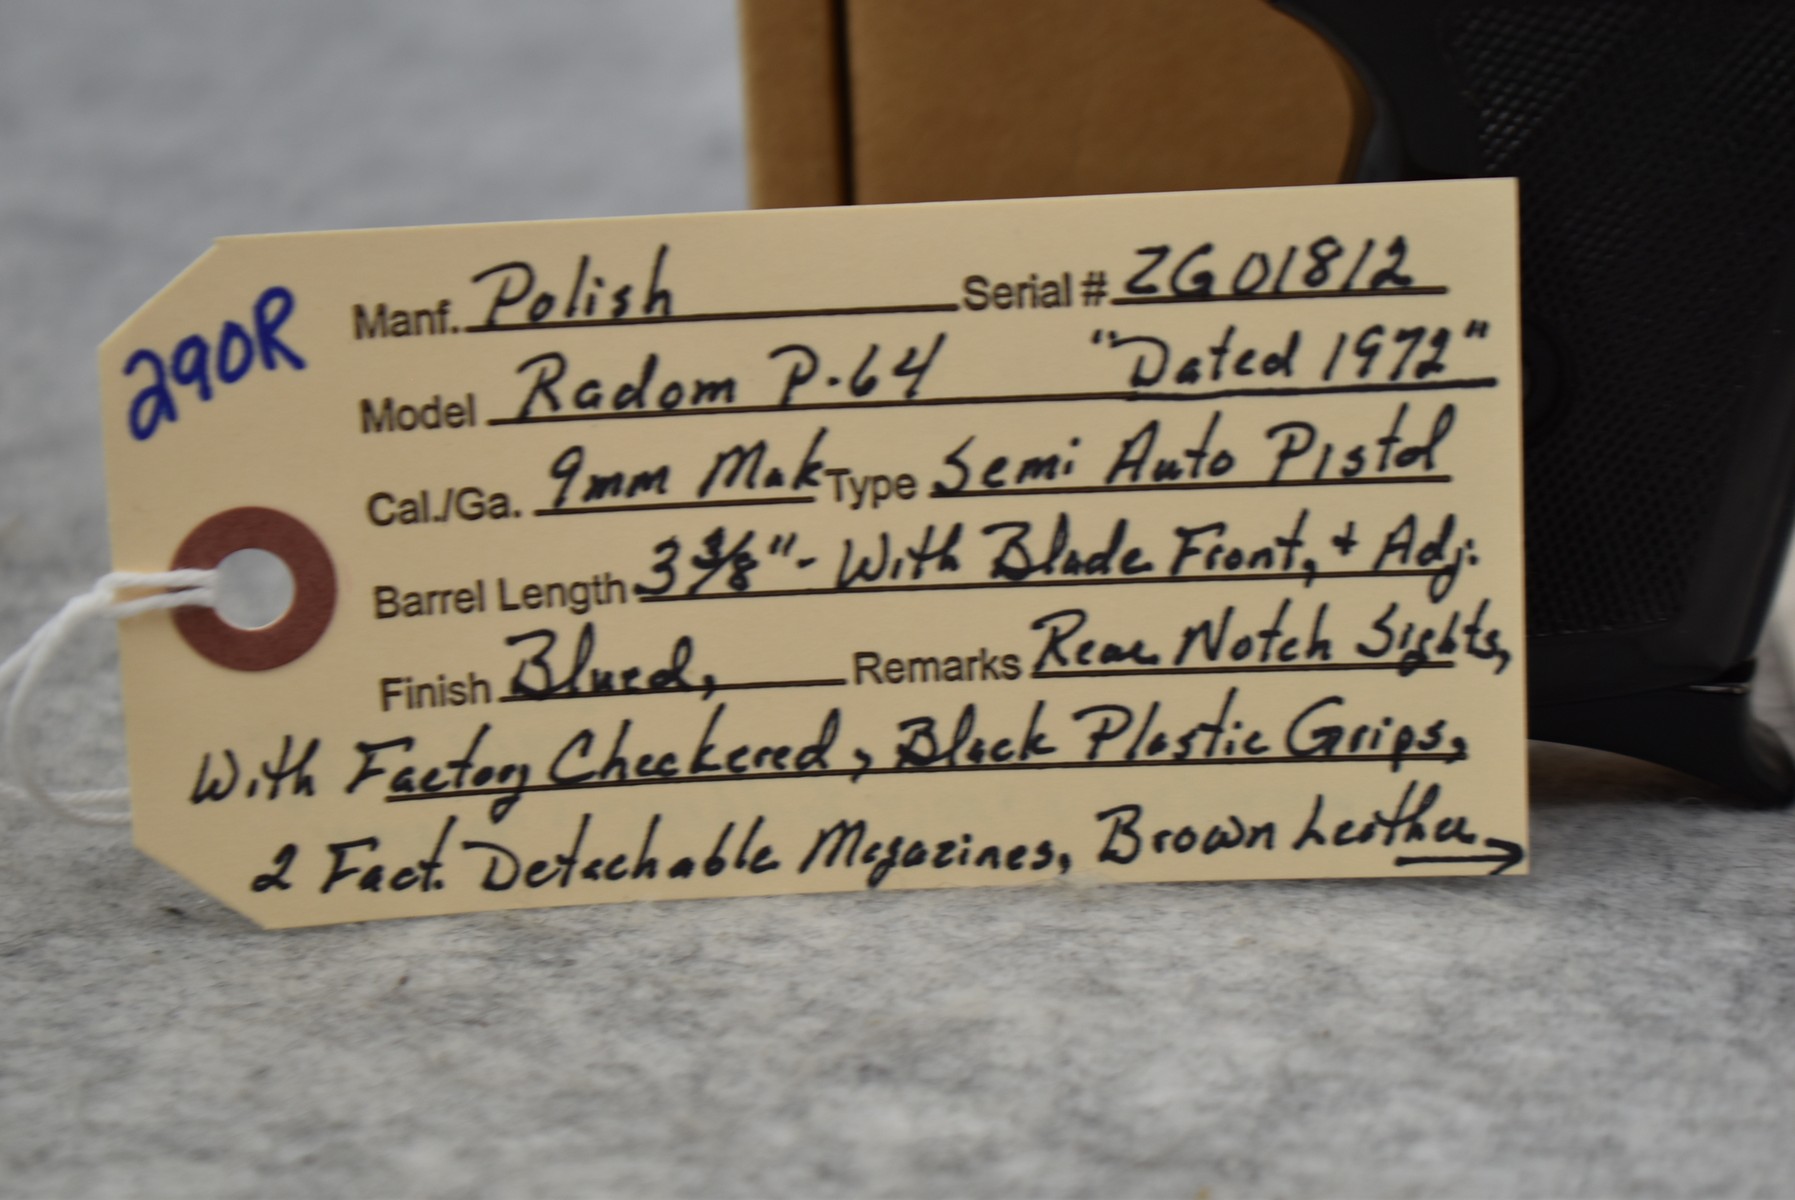 290R
Manf. Polish Serial # ZG01812
Model Radom P-64 "Dated 1972"
Cal./Ga. 9mm Mak Type Semi Auto Pistol
Barrel Length 3 3/8" - With Blade Front, + Adj.
Finish Blued, Remarks Rear Notch Sights,
With Factory Checkered, Black Plastic Grips,
2 Fact. Detachable Magazines, Brown Leather →